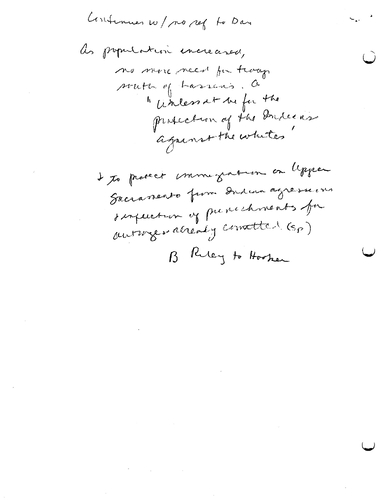 Continues w/ no ref to Dan
As population increased,
no more need for troops
south of Lassens. a
"unless it be for the
protection of the Indians
against the whites'
+ to protect immigration on Upper
Sacramento from Indian agressions
+ infliction of punishments for
outrages already comitted. (sp)
B Riley to Hooker